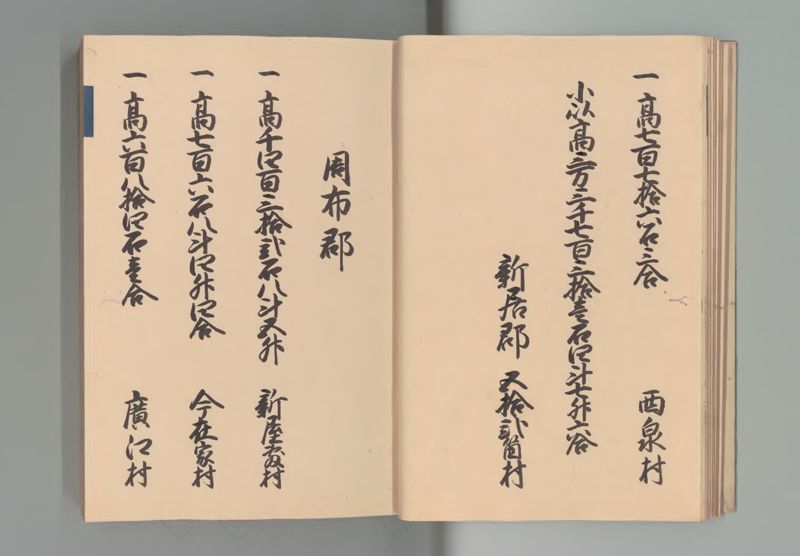 一高七百七拾六石三合 西泉村
小以高三万三千七百三拾壱石四斗七升六合
新居郡 五拾弐箇村
周布郡
一高千四百三拾弐石八斗五升 新屋敷村
一高七百六石八斗四升四合 今在家村
一高六百八拾四石壱合 廣江村